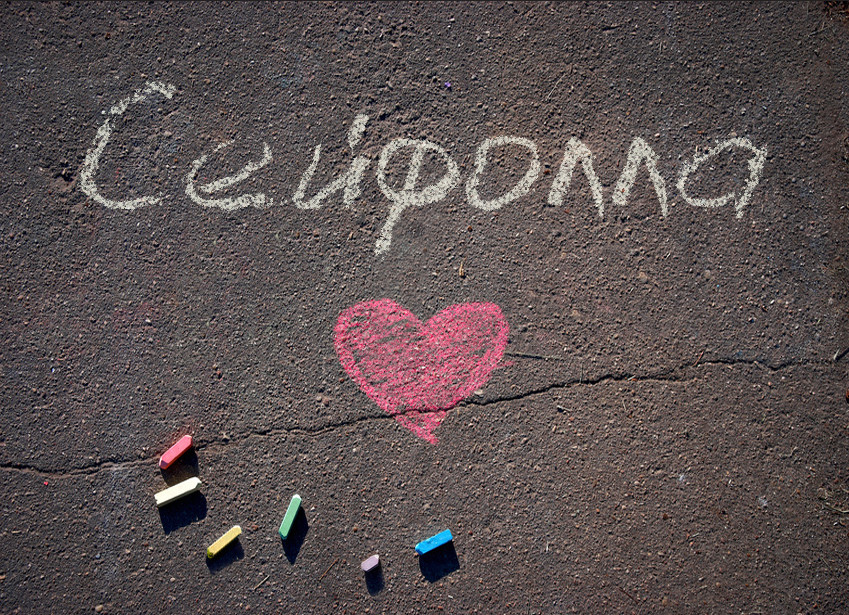 Сейфолла